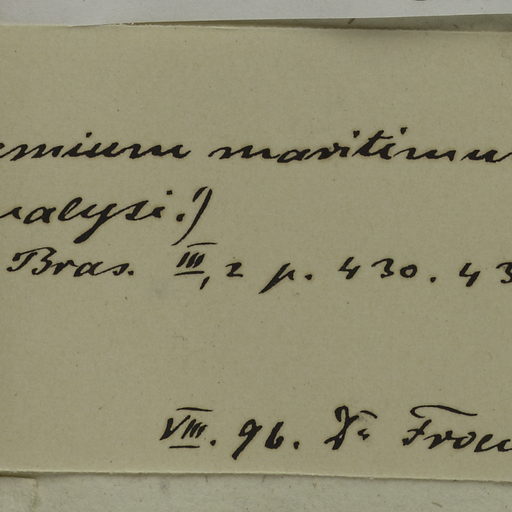 emium maritimu
nalysi!)
Bras. III, 2 p. 430. 43
VIII. 96. Dr Froe